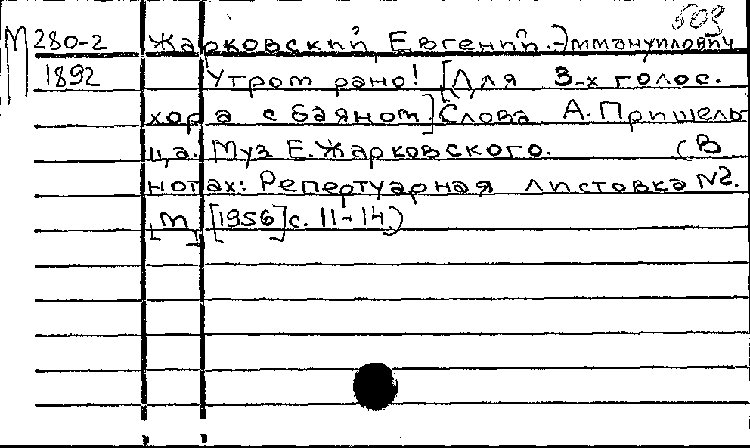 609
М 280-2 Жарковский, Евгений Эммануилович
1892 Утром рано! [Для 3-х голос.
хора с баяном] Слова А. Пришель
ца. Муз Е. Жарковского. (В
нотах: Репертуарная листовка №2.
[М] [1956] с. 11-14)